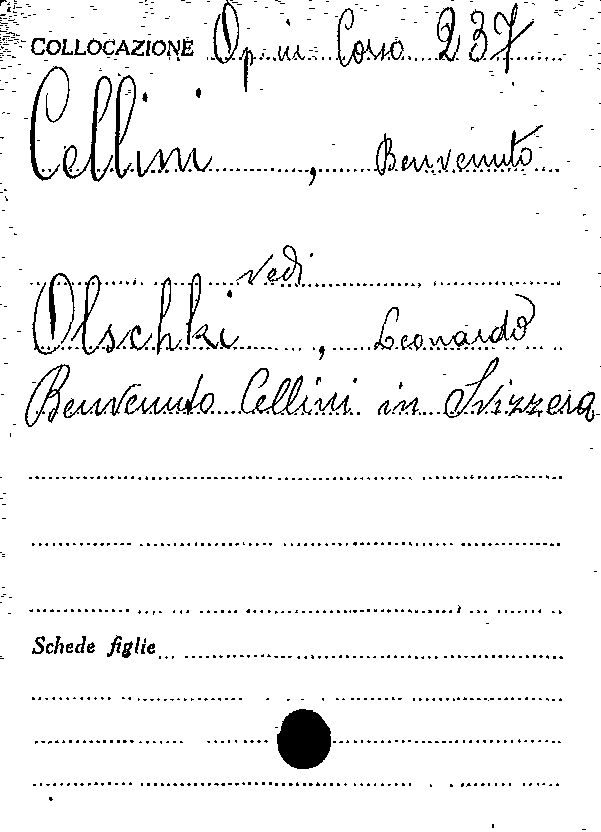 COLLOCAZIONE Op. in Corso 237
Cellini, Benvenuto
vedi
Olschki, Leonardo
Benvenuto Cellini in Svizzera
Schede figlie